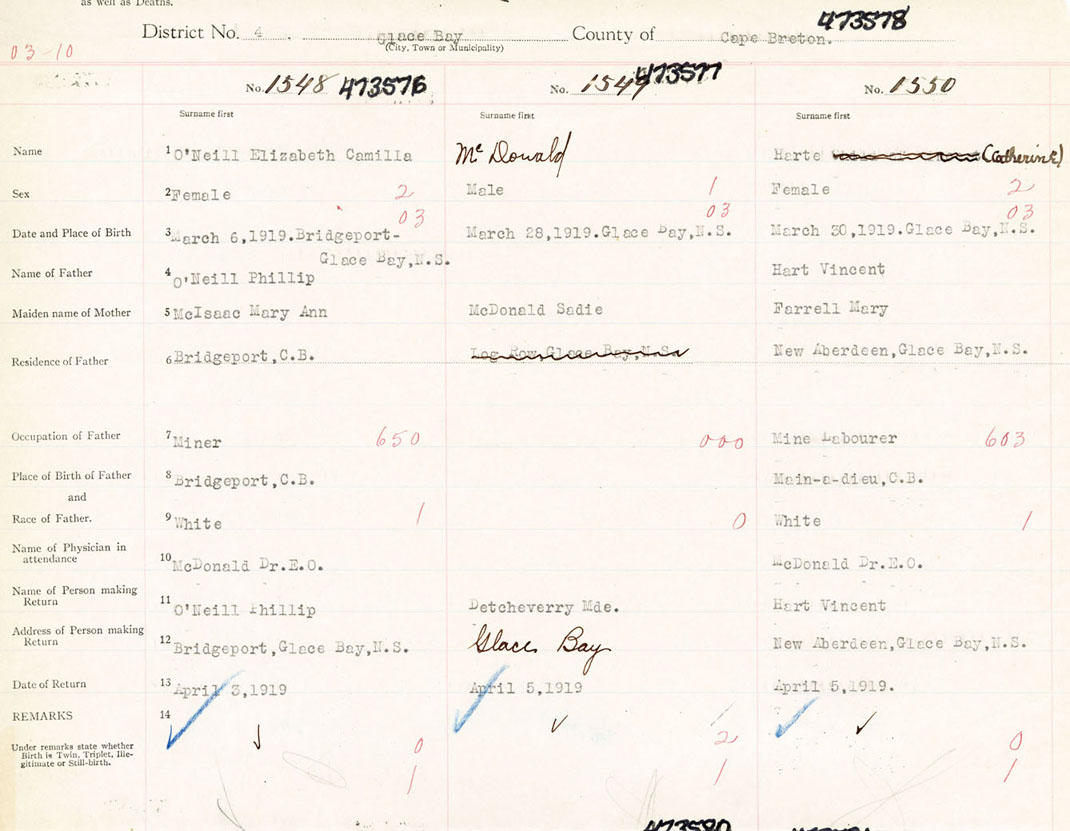 as well as Deaths.
473578
District No. 4 . Glace Bay County of Cape Breton.
(City, Town or Municipality)
03-10
No. 1548 473576 No. 1549 473577 No. 1550
Surname first Surname first Surname first
Name 1 O'Neill Elizabeth Camilla Mc Donald Harte (Catherine)
Sex 2 Female 2 Male 1 Female 2
03 03 03
Date and Place of Birth 3 March 6,1919.Bridgeport- March 28,1919.Glace Bay,N.S. March 30,1919.Glace Bay,N.S.
Glace Bay,N.S.
Name of Father 4 O'Neill Phillip Hart Vincent
Maiden name of Mother 5 McIsaac Mary Ann McDonald Sadie Farrell Mary
Residence of Father 6 Bridgeport,C.B. Log Row Glace Bay,N.S. New Aberdeen,Glace Bay,N.S.
Occupation of Father 7 Miner 650 000 Mine Labourer 603
Place of Birth of Father 8 Bridgeport,C.B. Main-a-dieu,C.B.
and
Race of Father. 9 White 1 0 White 1
Name of Physician in
attendance 10 McDonald Dr.E.O. McDonald Dr.E.O.
Name of Person making
Return 11 O'Neill Phillip Detcheverry Mde. Hart Vincent
Address of Person making
Return 12 Bridgeport,Glace Bay,N.S. Glace Bay New Aberdeen,Glace Bay,N.S.
Date of Return 13 April 3,1919 April 5,1919 April 5,1919.
REMARKS 14
Under remarks state whether
Birth is Twin, Triplet, Ille-
gitimate or Still-birth.
0 2 0
1 1 1
473580